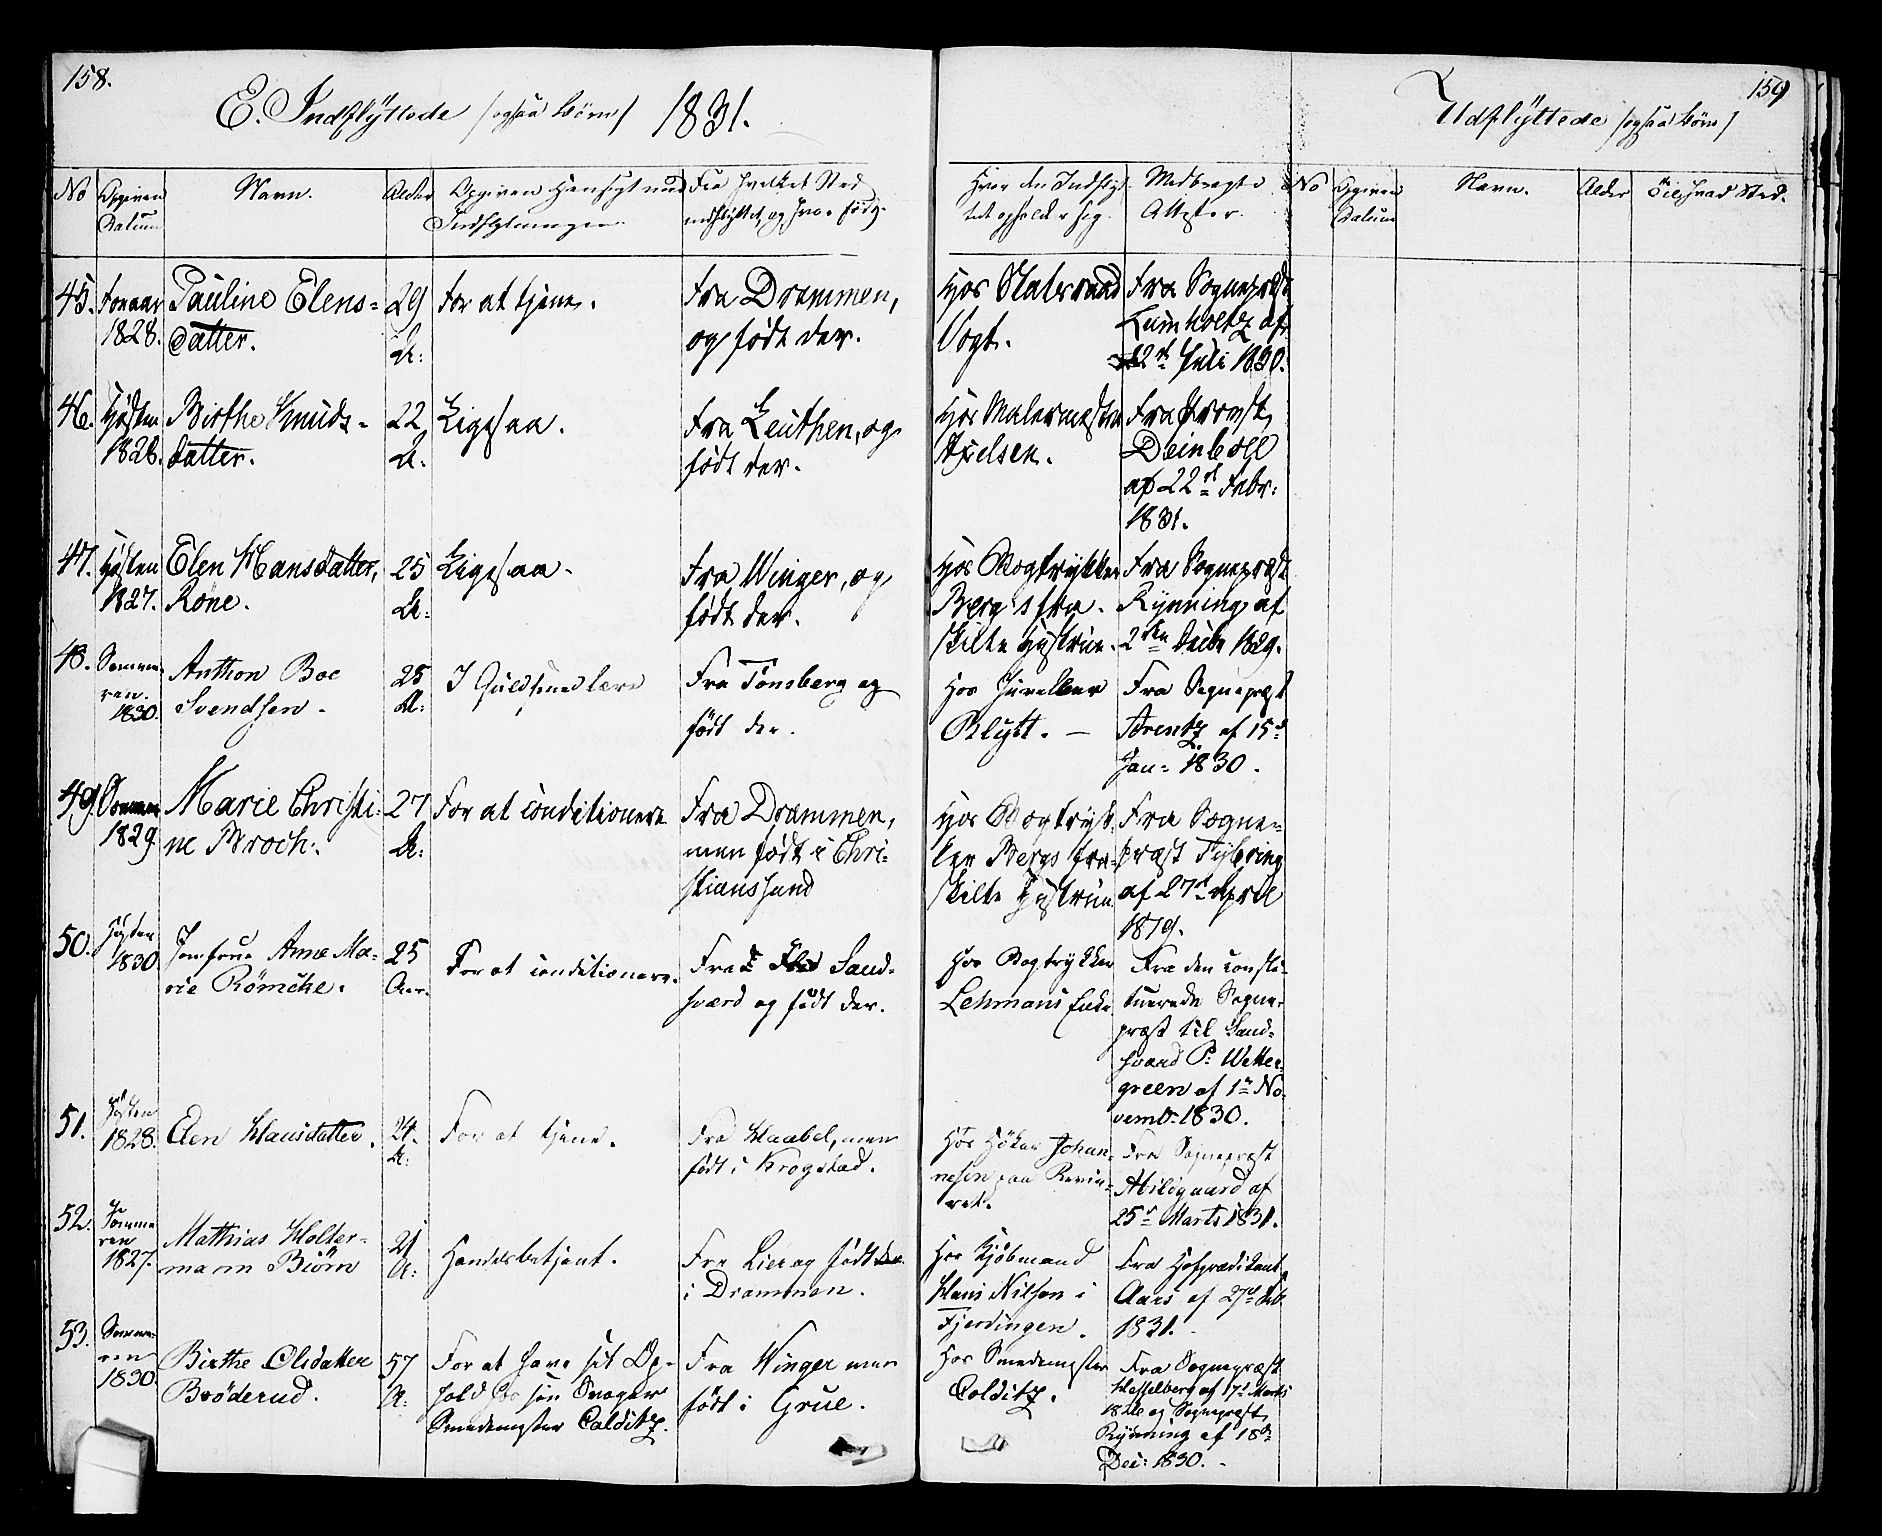 158.
E. Indflÿttede /ogsaa Börn/ 1831.
No
Opgiven
Datum
Navn.
Alder
Opgiven Hensigt med
Indflytningen
Fra hvilket Sted
indflyttet, og hvor født.
Hvor den Indflyt-
tede opholder sig.
Medbragte
Attester.
45.
Foraar
1828.
Pauline Elens-
datter.
29
A:
For at tjene.
Fra Drammen,
og født der.
Hos Statsraad
Vogt.
Fra Sognepræst
Lumholtz af
22d Juli 1830.
46.
Høsten
1828.
Birthe Knuds-
datter.
22
A:
Ligesaa.
Fra Leuthen, og
født der.
Hos Malermester
Axelsen.
Fra Provst
Deinboll
af 22d Febr:
1831.
47.
Høsten
1827.
Elen Hansdatter,
Röne.
25
A:
Ligesaa.
Fra Winger, og
født der.
Hos Bogtrykker
Berg's fra-
skilte Hustrue.
Fra Sognepræst
Rynning af
2den Decbr 1829.
48.
Somme-
ren
1830.
Anthon Boe
Svendsen.
25
A:
I Guldsmedlære
Fra Tönsberg og
født der.
Hos Juveleer
Blytt. —
Fra Sognepræst
Arentz af 15d
Jan: 1830.
49.
Sommeren
1829.
Marie Christi-
ne Broch.
27
A:
For at conditionere
Fra Drammen,
men født i Chri-
stianssand
Hos Bogtryk-
ker Bergs fra-
skilte Hustrue
Fra Sogne-
præst Tybring
af 27d April
1819.
50.
Høsten
1830.
Jomfrue Anne Ma-
rie Römcke.
25
Aar.
For at conditionere.
Fra Sand-
sværd og født der.
Hos Bogtrykker
Lehmans Enke
Fra den consti-
tuerede Sogne-
præst til Sand-
sværd P: Wetter-
green af 1d No-
vemb: 1830.
51.
Høsten
1828.
Elen Hansdatter.
24.
A:
For at tjene.
Fra Haabel, men
født i Krogstad.
Hos Høker Johan-
nesen paa Ruseløk-
Fra Sognepræst
Abildgaard af
25d Marts 1831.
52.
Somme-
ren
1827.
Mathias Holter-
mann Biörn
21
A:
Handelsbetjent.
Fra Lier og født
i Drammen.
Hos Kjöbmand
Hans Nilsen i
Fjerdingen.
Fra Hofprædikant
Aars af 27d Feb.
1831.
53.
Somme-
ren
1830.
Birthe Olsdatter
Bröderud.
57
A:
For at have sit Op-
hold hos sin Svoger
Smedemester Colditz.
Fra Winger men
født i Grue.
Hos Smedemester
Colditz.
Fra Sognepræst
Hesselberg af 17d Marts
og Sognepræst
Rynning af 18d
Dec: 1830.
159
Udflÿttede /ogsaa Börn/
No
Opgiven
Datum
Navn.
Alder
Til hvad Sted.